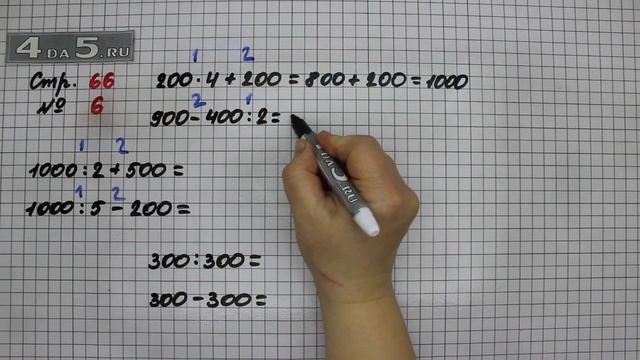 4DA5.RU
Стр. 66
№ 6
1 2
200 · 4 + 200 = 800 + 200 = 1000
2 1
900 - 400 : 2 =
1 2
1000 : 2 + 500 =
1 2
1000 : 5 - 200 =
300 : 300 =
300 - 300 =
4DA5.RU